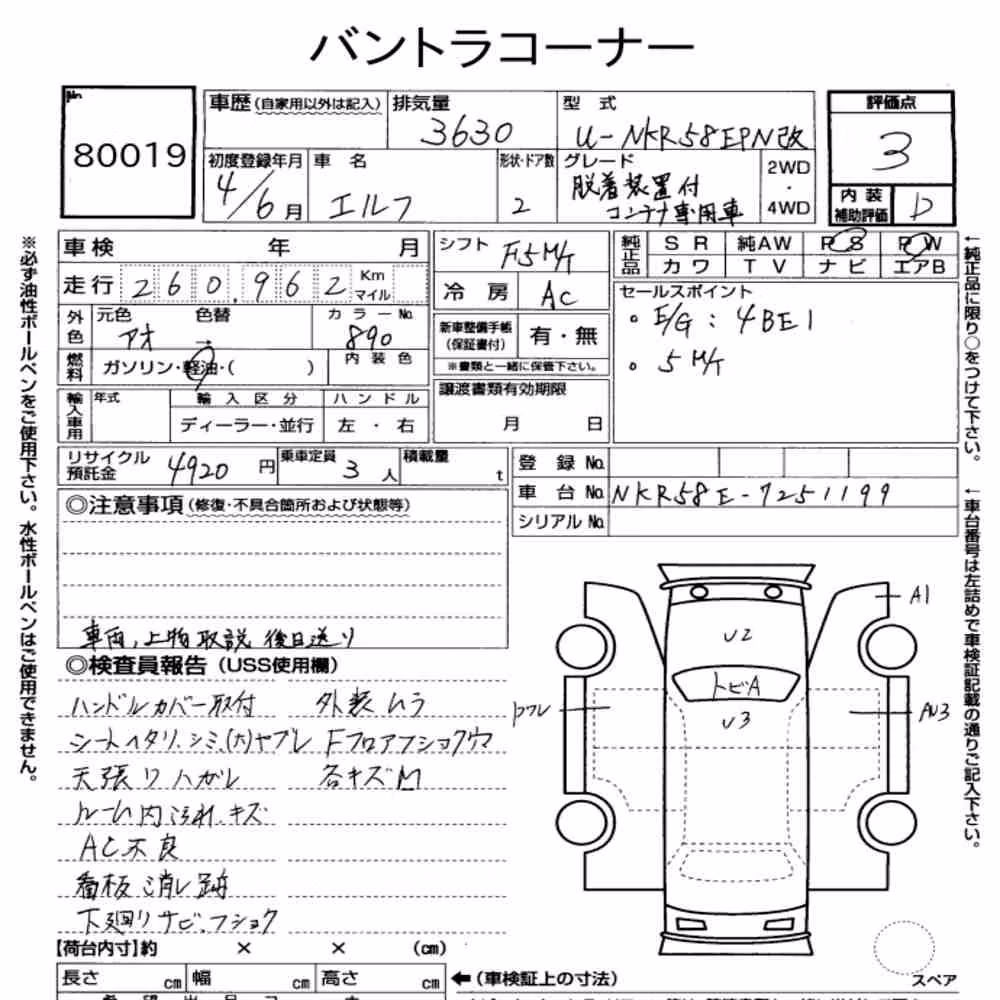 バントラコーナー
No. 80019
車歴(自家用以外は記入)
排気量 3630
型式 U-NKR58EPN改
評価点 3
初度登録年月 4/6月
車名 エルフ
形状・ドア数 2
グレード 脱着装置付
コンテナ専用車
2WD・4WD
内装補助評価 D
車検 年 月
シフト F5M/T
純正品 SR 純AW PS PW
カワ TV ナビ エアB
走行 260,962 Km マイル
冷房 AC
セールスポイント
・E/G: 4BE1
・5M/T
外色 元色 アオ 色替 → カラーNo. 890
新車整備手帳(保証書付) 有・無
※書類と一緒に保管下さい。
燃料 ガソリン・軽油・( )
内装色
輸入車用 年式 輸入区分 ハンドル
ディーラー・並行 左・右
譲渡書類有効期限
月 日
リサイクル預託金 4920円
乗車定員 3人
積載量 t
登録No.
車台No. NKR58E-7251199
シリアルNo.
◎注意事項(修復・不具合箇所および状態等)
車両,上物取説後日送り
◎検査員報告(USS使用欄)
ハンドルカバー取付 外装ムラ
シートヘタリ.シミ.(大)ヤブレ Fフロアフショクウマ
天張りハガレ 各キズM
ルーム内汚れ.キズ
AC不良
看板消し跡
下廻りサビ.フショク
A1
U2
トビA
U3
ワレ
AU3
【荷台内寸】約 × × (cm)
長さ cm 幅 cm 高さ cm
←(車検証上の寸法)
スペア
※必ず油性ボールペンをご使用下さい。水性ボールペンはご使用できません。
←純正品に限り○をつけて下さい。
←車台番号は左詰めで車検証記載の通りご記入下さい。